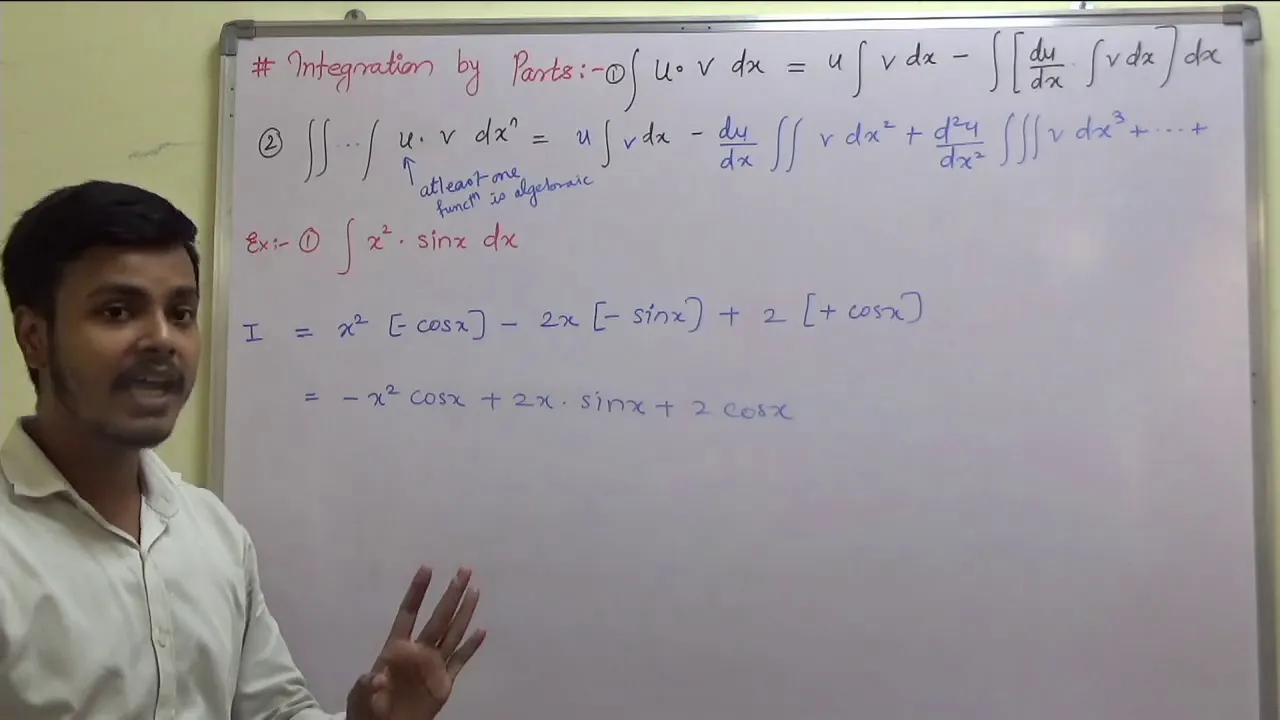 # Integration by Parts:- ① ∫ u· v dx = u ∫ v dx - ∫ [du/dx · ∫ v dx] dx
② ∫∫ ... ∫ u· v dxⁿ = u ∫ v dx - du/dx ∫∫ v dx² + d²u/dx² ∫∫∫ v dx³ + ... +
↑ atleast one
functⁿ is algebraic
Ex:- ① ∫ x² · sinx dx
I = x² [- cosx] - 2x [- sinx] + 2 [+ cosx]
= - x² cosx + 2x · sinx + 2 cosx